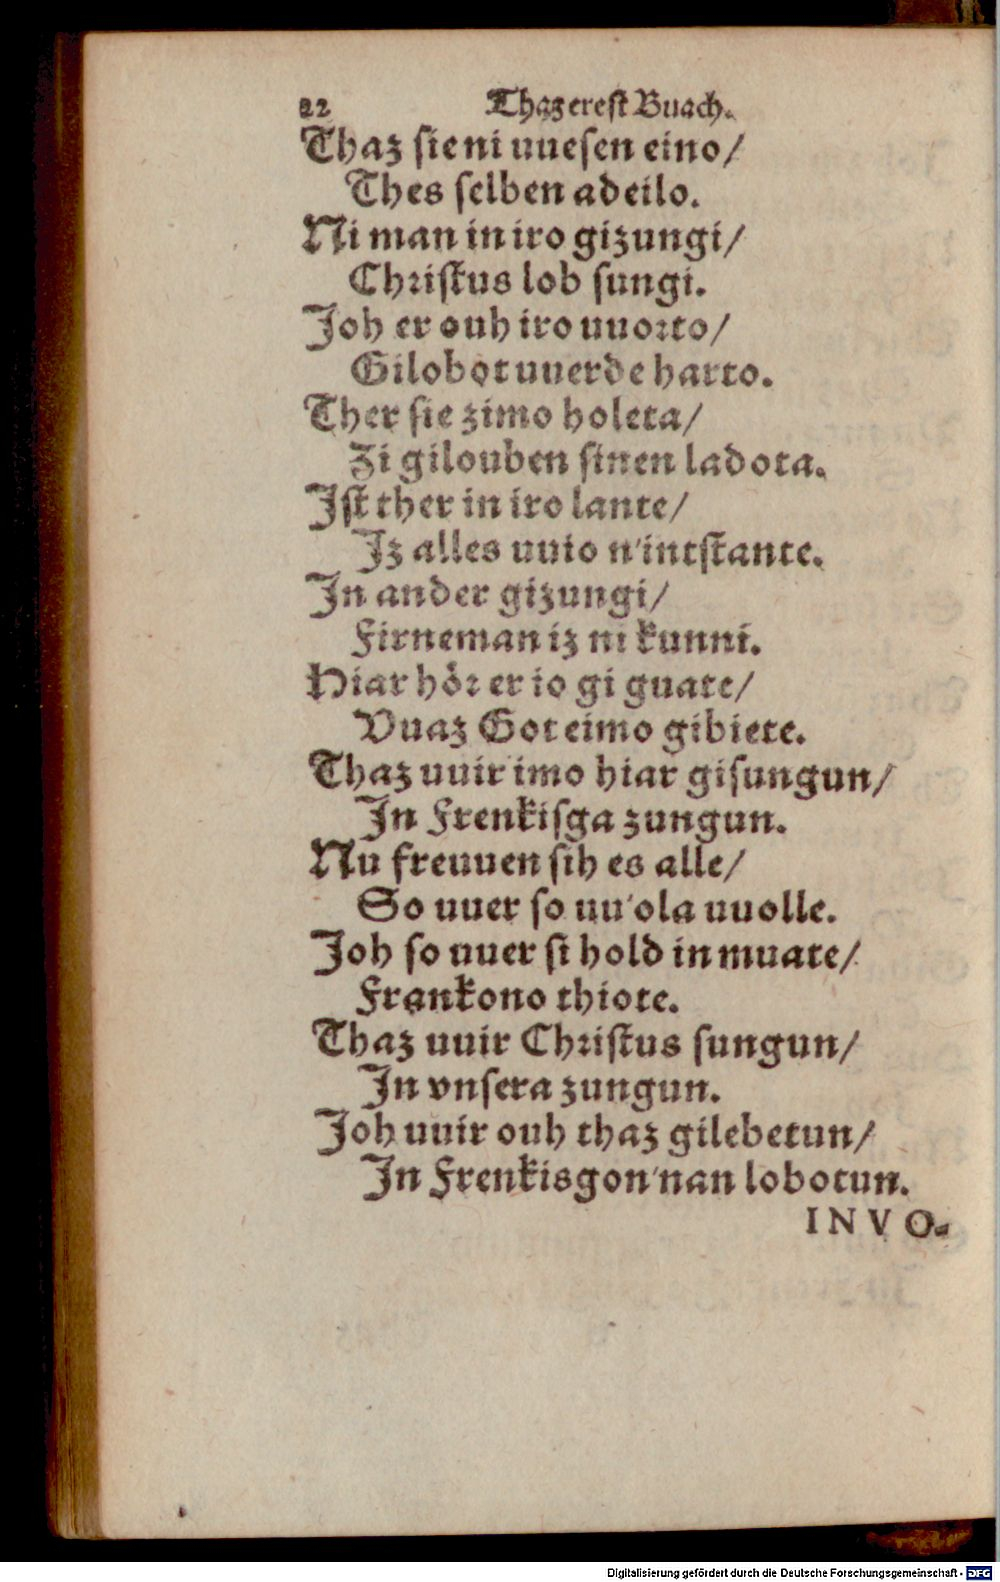 22 Thaz erest Buach.
Thaz sie ni uuesen eino/
Thes selben adeilo.
Ni man in iro gizungi/
Christus lob sungi.
Joh er ouh iro uuorto/
Gilobot uuerde harto.
Ther sie zimo holeta/
Zi gilouben sinen ladota.
Ist ther in iro lante/
Iz alles uuio n'intstante.
In ander gizungi/
Firneman iz ni kunni.
Hiar hôr er io gi guate/
Vuaz Got eimo gibiete.
Thaz uuir imo hiar gisungun/
In Frenkisga zungun.
Nu freuuen sih es alle/
So uuer so uu'ola uuolle.
Joh so uuer si hold in muate/
Frankono thiote.
Thaz uuir Christus sungun/
In vnsera zungun.
Joh uuir ouh thaz gilebetun/
In Frenkisgon'nan lobotun.
INVO-
Digitalisierung gefördert durch die Deutsche Forschungsgemeinschaft - DFG